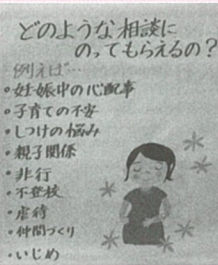 どのような相談に
のってもらえるの?
例えば…
•妊娠中の心配事
•子育ての不安
•しつけの悩み
•親子関係
•非行
•不登校
•虐待
•仲間づくり
•いじめ